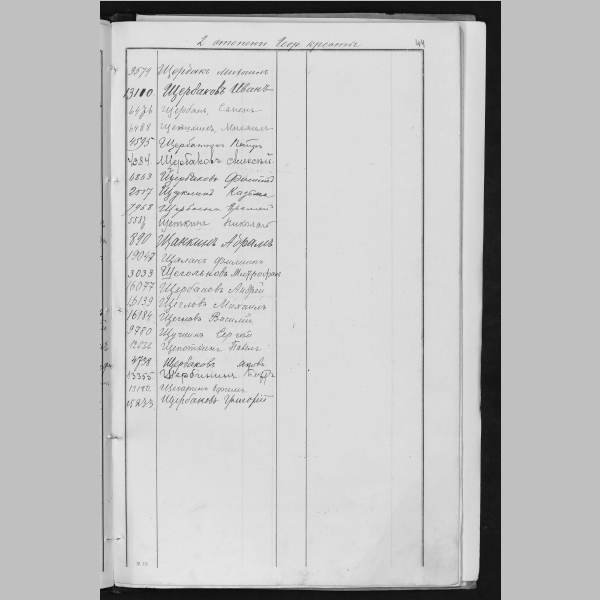 2 степени Геор. креста
44
3579 Щербакъ Михаилъ
13110 Щербаковъ Иванъ
6426 Щербань Семенъ
6488 Щеткинъ Михаилъ
4595 Щербатюкъ Петръ
4684 Щербаковъ Алексѣй
6863 Щербаковъ
2557 Щуклинъ Казьма
7968 Щербина Еремей
5586 Щеткинъ Николай
890 Щанкинъ Абрамъ
19047 Щапакъ Филиппъ
3033 Щегольковъ Митрофанъ
16077 Щербаковъ Андрей
16139 Щегловъ Михаилъ
16184 Щегловъ Василій
9780 Щучкинъ Сергѣй
12526 Щепоткинъ Павелъ
4738 Щербаковъ Яковъ
13355 Щербининъ Петръ
Щегаринъ Ефимъ
15233 Щербаковъ Григорій